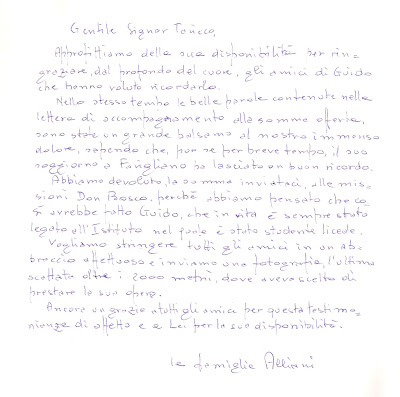 Gentile Signor Toricco,
Approfittiamo della sua disponibilità per rin-
graziare, dal profondo del cuore, gli amici di Guido
che hanno voluto ricordarlo.
Nello stesso tempo le belle parole contenute nella
lettera di accompagnamento alla somma offerta,
sono state un grande balsamo al nostro immenso
dolore, sapendo che, pur se per breve tempo, il suo
soggiorno a Farigliano ha lasciato un buon ricordo.
Abbiamo devoluto, la somma inviataci, alle mis-
sioni Don Bosco, perché abbiamo pensato che co-
sì avrebbe fatto Guido, che in vita è sempre stato
legato all'Istituto nel quale è stato studente liceale.
Vogliamo stringere tutti gli amici in un ab-
braccio affettuoso e inviamo una fotografia, l'ultima
scattata oltre i 2000 metri, dove aveva scelto di
prestare la sua opera.
Ancora un grazie a tutti gli amici per questa testimo-
nianza di affetto e a Lei per la sua disponibilità.
la famiglia Alliani